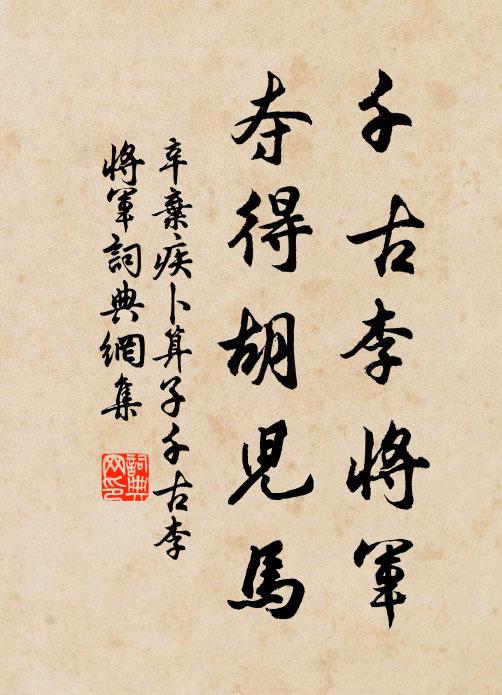 千古李將軍
夺得胡兒馬
辛棄疾卜算子千古李
將軍詞典網集
詞典网印